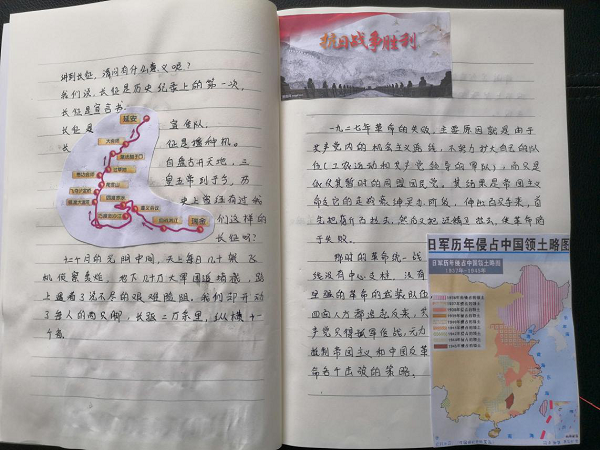 讲到长征，请问有什么意义呢？
我们说，长征是历史纪录上的第一次，
长征是宣言书，
长征是宣传队，
长征是播种机。
自盘古开天地，三
皇五帝到于今，历
史上曾经有过我
们这样的
长征吗？
十二个月的光阴中间，天上每日几十架飞
机侦察轰炸，地下几十万大军围追堵截，路
上遇着了说不尽的艰难险阻，我们却开动
了每人的两只脚，长驱二万余里，纵横十一
个省。
延安
大会师
腊子口
过草地
懋功会师
爬雪山
飞夺泸定桥
强渡大渡河
四渡赤水
遵义会议
巧渡金沙江
血战湘江
瑞金
抗日战争胜利
一九二七年革命的失败，主要原因就是由于
共产党内的机会主义路线，不努力扩大自己的队
伍（工农运动和共产党领导的军队），而只是
依仗其暂时的同盟国民党。其结果是帝国主义
命令它的走狗豪绅买办阶级，伸出几只手来，首
先把蒋介石拉去，然后又把汪精卫拉去，使革命陷
于失败。
那时的革命统一战
线没有中心支柱，没有
坚强的革命的武装队伍
四面八方都造反起来，共
产党只得孤军作战，无力
抵制帝国主义和中国反革
命各个击破的策略。
日军历年侵占中国领土略图
日军历年侵占中国领土略图